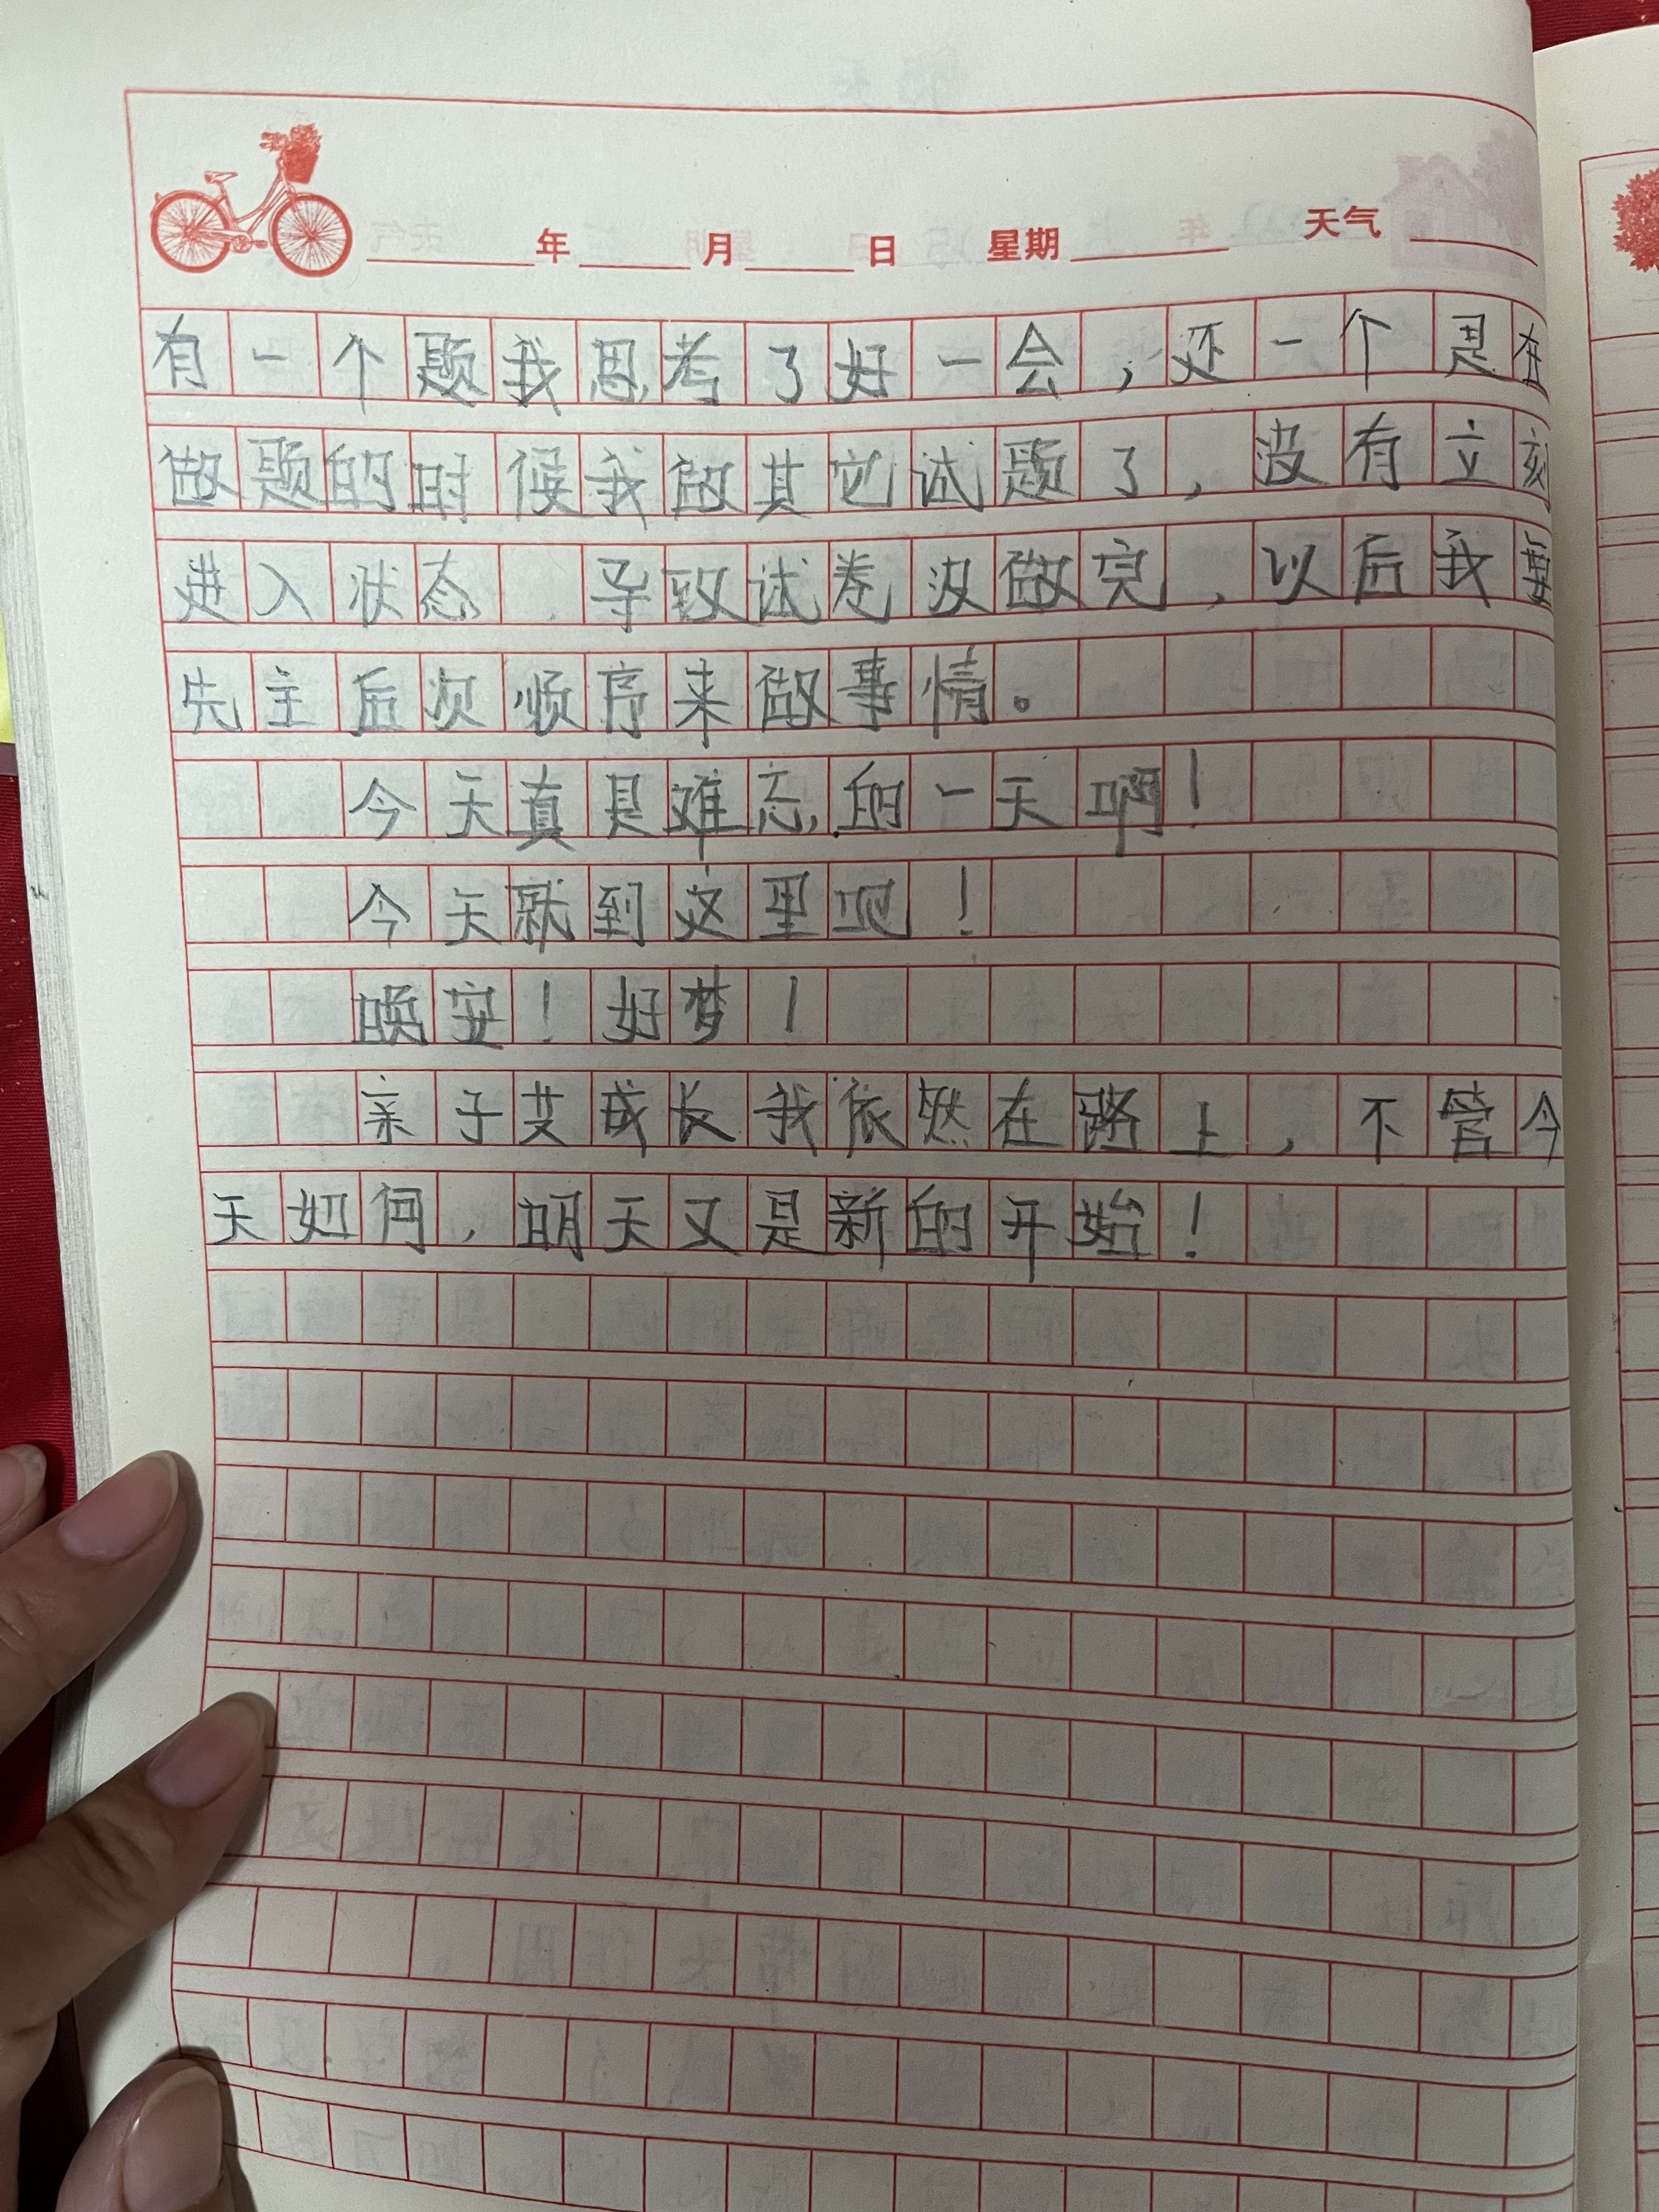 年 月 日 星期 天气
有一个题我思考了好一会,还一个是在
做题的时候我做其它试题了,没有立刻
进入状态,导致试卷没做完,以后我要
先主后次顺序来做事情。
今天真是难忘的一天啊!
今天就到这里吧!
晚安!好梦!
亲子艾成长我依然在路上,不管今
天如何,明天又是新的开始!